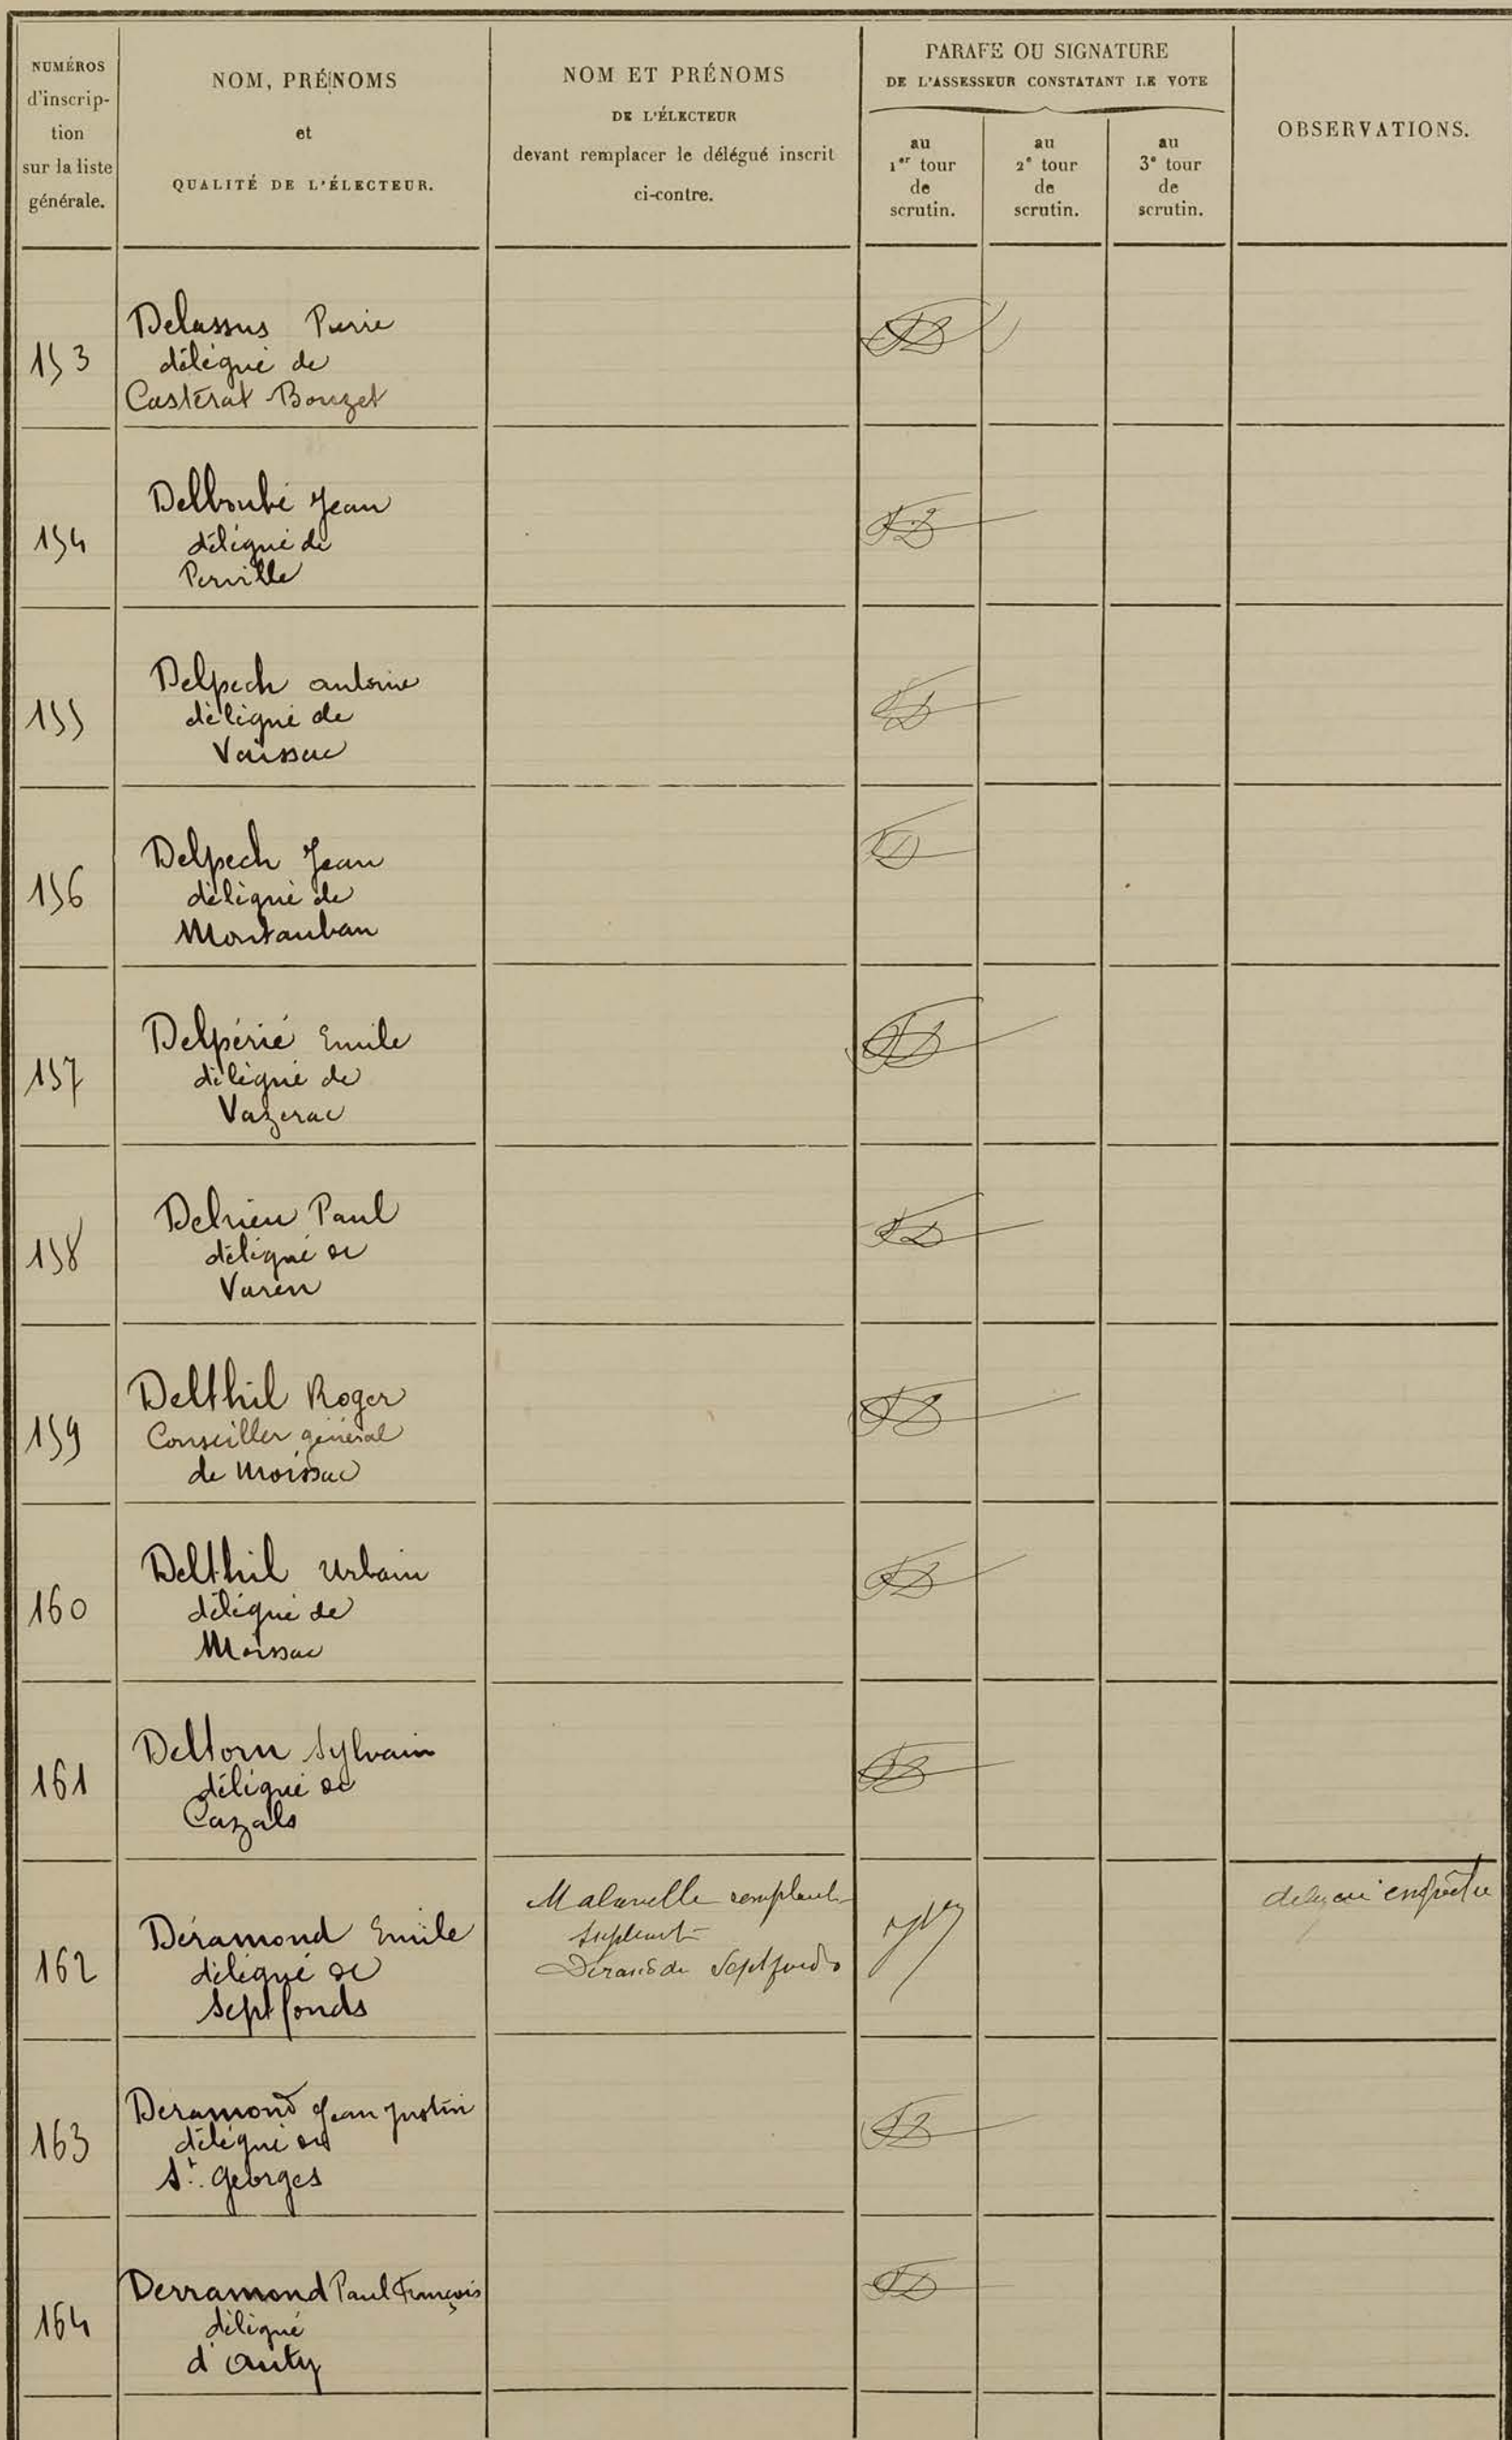 NUMÉROS
d'inscrip-
tion
sur la liste
générale.
NOM, PRÉNOMS
et
QUALITÉ DE L'ÉLECTEUR.
NOM ET PRÉNOMS
DE L'ÉLECTEUR
devant remplacer le délégué inscrit
ci-contre.
PARAFE OU SIGNATURE
DE L'ASSESSEUR CONSTATANT LE VOTE
au
1er tour
de
scrutin.
au
2e tour
de
scrutin.
au
3e tour
de
scrutin.
OBSERVATIONS.
153
Delassus Pierre
délégué de
Castérat Bouzet
154
Delboubé Jean
délégué de
Perville
155
Delpech antoine
délégué de
Vaïssac
156
Delpech Jean
délégué de
Montauban
157
Delpérié Emile
délégué de
Vazerac
158
Delrieu Paul
délégué de
Varen
159
Delthil Roger
Conseiller général
de Moissac
160
Delthil Urbain
délégué de
Moissac
161
Deltorn Sylvain
délégué de
Cazals
162
Déramond Emile
délégué de
Septfonds
suppleant
Septfonds
163
Deramond Jean Justin
délégué de
St. Georges
164
Derramond Paul François
délégué
d'Auty